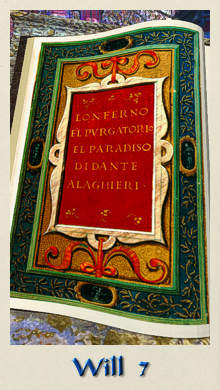 LO NFERNO
EL PVRGATORIO
EL PARADISO
DI DANTE
ALAGHIERI ·
Will 7